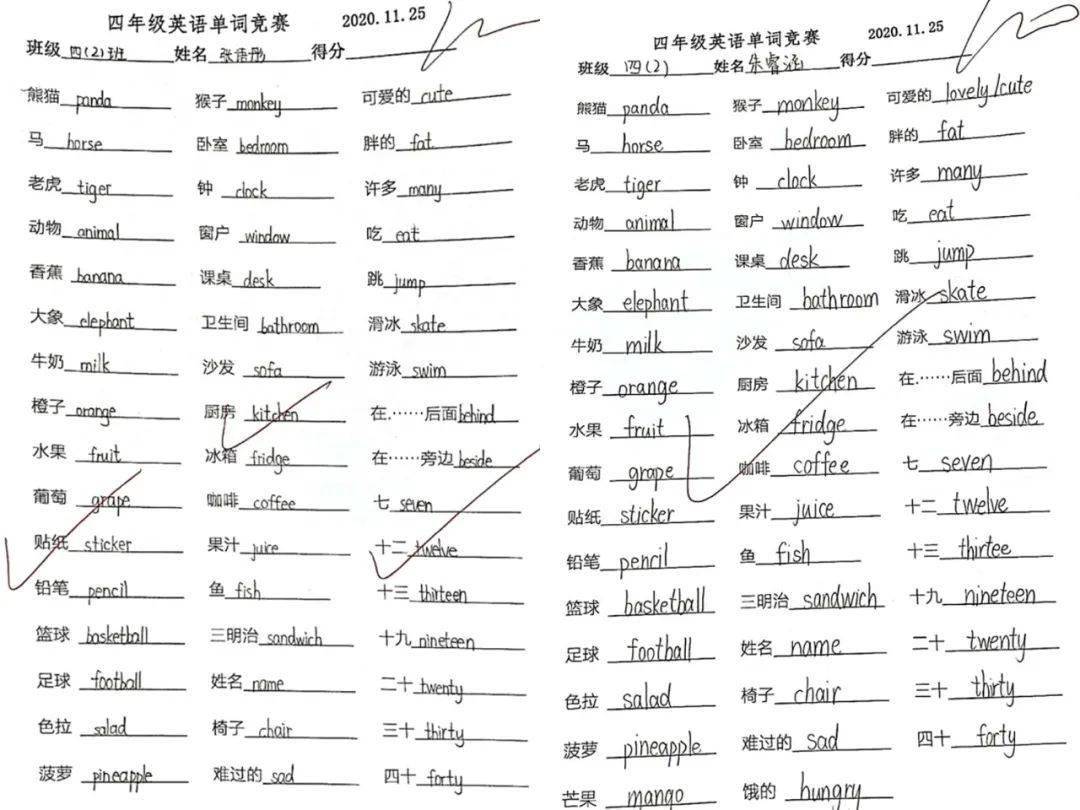 四年级英语单词竞赛 2020.11.25
班级 四(2)班 姓名 得分
熊猫 panda 猴子 monkey 可爱的 cute
马 horse 卧室 bedroom 胖的 fat
老虎 tiger 钟 clock 许多 many
动物 animal 窗户 window 吃 eat
香蕉 banana 课桌 desk 跳 jump
大象 elephant 卫生间 bathroom 滑冰 skate
牛奶 milk 沙发 sofa 游泳 swim
橙子 orange 厨房 kitchen 在……后面 behind
水果 fruit 冰箱 fridge 在……旁边 beside
葡萄 grape 咖啡 coffee 七 seven
贴纸 sticker 果汁 juice 十二 twelve
铅笔 pencil 鱼 fish 十三 thirteen
篮球 basketball 三明治 sandwich 十九 nineteen
足球 football 姓名 name 二十 twenty
色拉 salad 椅子 chair 三十 thirty
菠萝 pineapple 难过的 sad 四十 forty
四年级英语单词竞赛 2020.11.25
班级 四(2) 姓名 朱睿涵 得分
熊猫 panda 猴子 monkey 可爱的 lovely/cute
马 horse 卧室 bedroom 胖的 fat
老虎 tiger 钟 clock 许多 many
动物 animal 窗户 window 吃 eat
香蕉 banana 课桌 desk 跳 jump
大象 elephant 卫生间 bathroom 滑冰 skate
牛奶 milk 沙发 sofa 游泳 swim
橙子 orange 厨房 kitchen 在……后面 behind
水果 fruit 冰箱 fridge 在……旁边 beside
葡萄 grape 咖啡 coffee 七 seven
贴纸 sticker 果汁 juice 十二 twelve
铅笔 pencil 鱼 fish 十三 thirtee
篮球 basketball 三明治 sandwich 十九 nineteen
足球 football 姓名 name 二十 twenty
色拉 salad 椅子 chair 三十 thirty
菠萝 pineapple 难过的 sad 四十 forty
芒果 mango 饿的 hungry